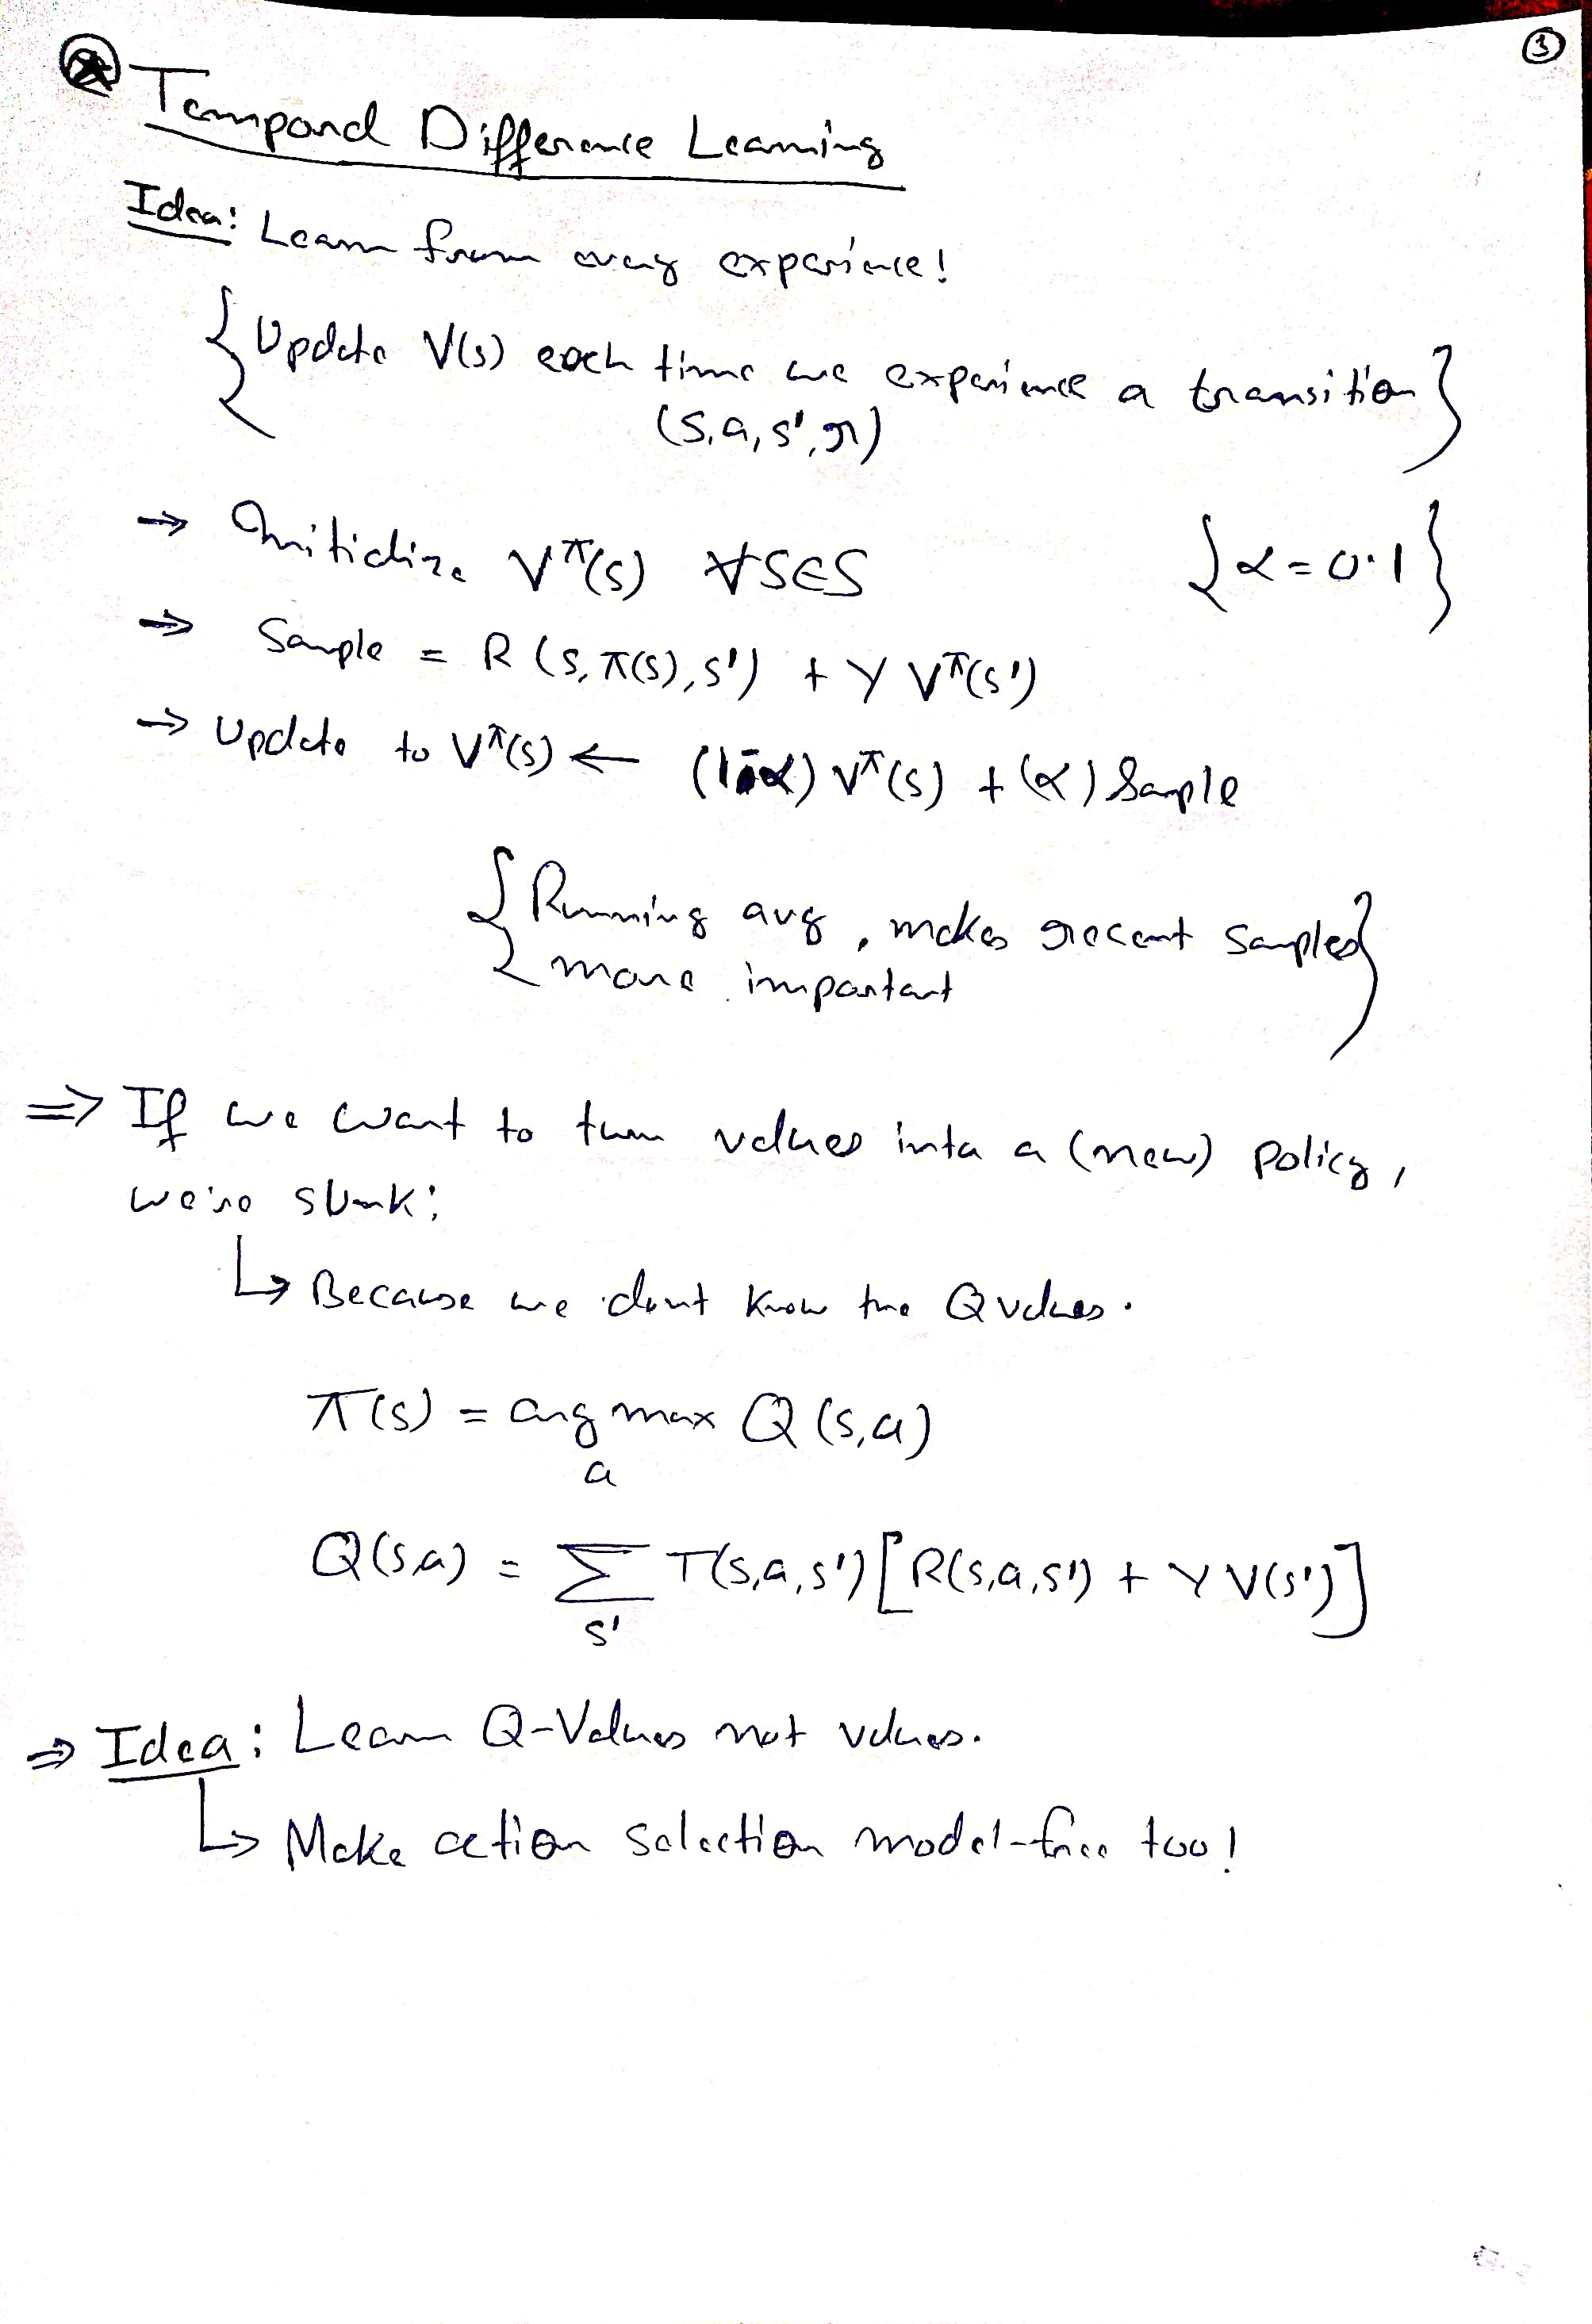 ③
Temporal Difference Learning
Idea: Learn from every experience!
{Update V(s) each time we experience a transition}
(s,a,s',r)
→ Initialize V^π(s) ∀s∈S {α=0.1}
→ Sample = R(s,π(s),s') + γ V^π(s')
→ Update to V^π(s) ← (1-α) V^π(s) + (α) Sample
{Running avg, makes recent samples
more important}
⇒ If we want to turn values into a (new) policy,
we're sunk:
↳ Because we don't know the Q values.
π(s) = arg max Q(s,a)
a
Q(s,a) = Σ T(s,a,s')[R(s,a,s') + γ V(s')]
s'
⇒ Idea: Learn Q-Values not values.
↳ Make action selection model-free too!